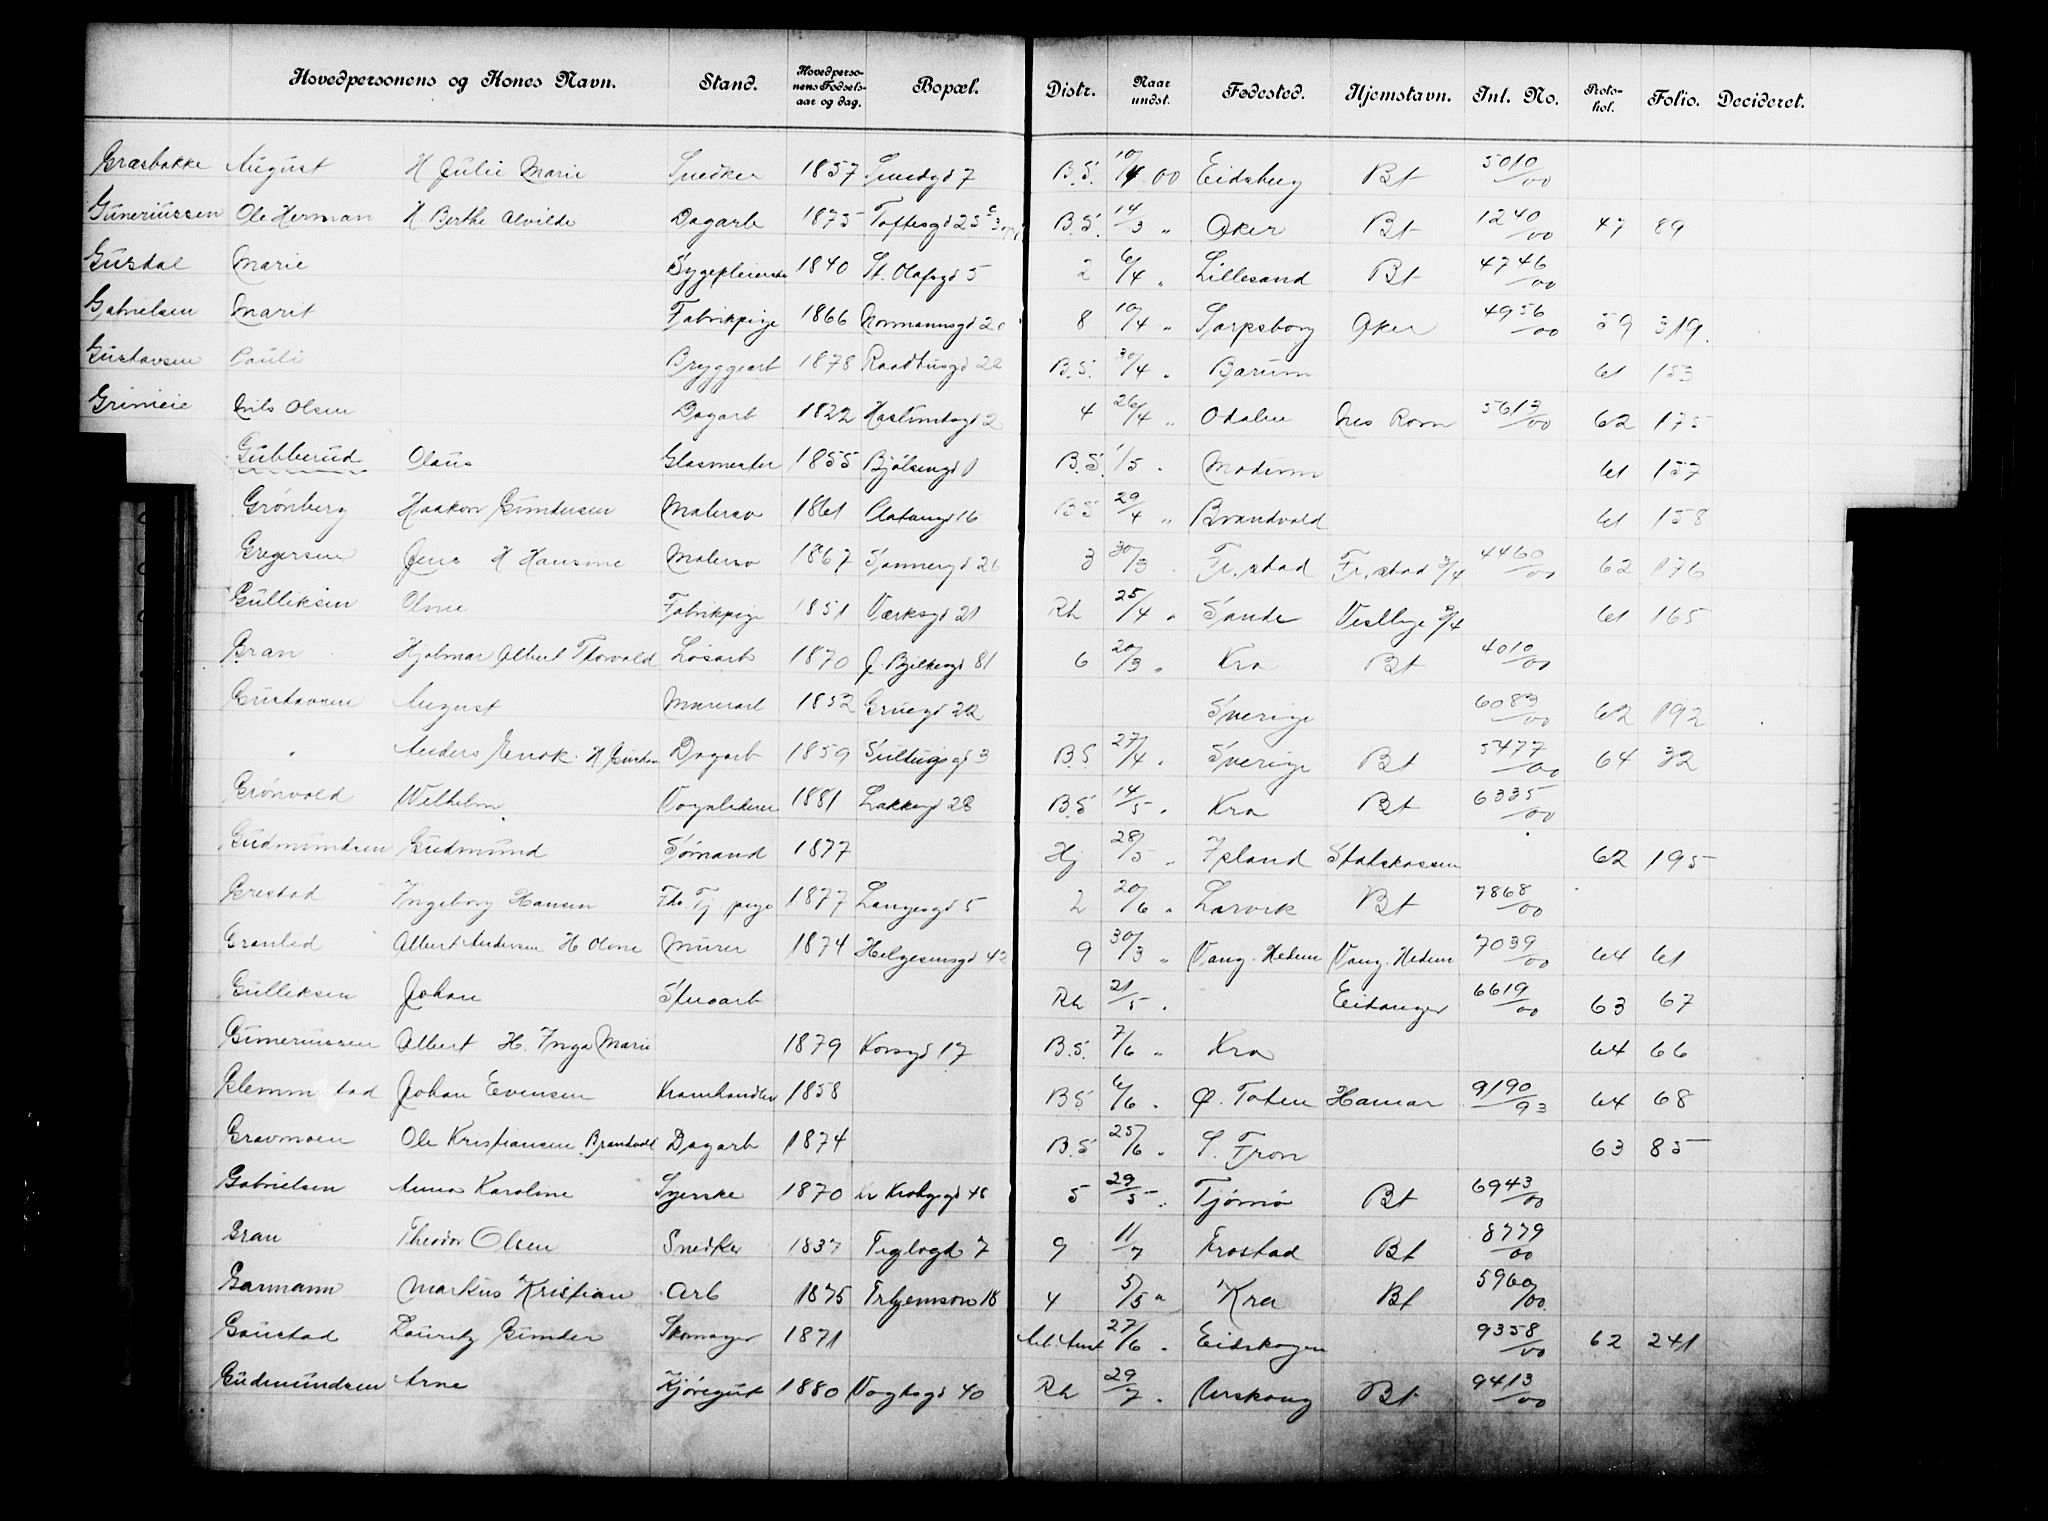 Hovedpersonens og Kones Navn. Stand. Hovedpersonens Fødselsaar og dag. Bopæl. Distr. Naar undst. Fødested. Hjemstavn. Int. No. Protokol. Folio. Decideret.
Græsbakke August H Julie Marie Snedker 1857 7 B.S. 10/4 00 Eidsberg Bt 5010/00
Guneriussen Ole Herman H. Berthe Alvilde Dagarb 1875 Toftesgd 25 B.S. 14/3 " Aker Bt 1240/00 47 89
Gusdal Marie Sygepleierske 1840 St. Olafsgd 5 2 6/4 " Lillesand Bt 4746/00
Gabrielsen Marit Fabrikpige 1866 Normannsgd 20 8 10/4 " Sarpsborg Aker 4956/00 59 319.
Gustavsen Pauli Bryggearb 1878 Raadhusgd 28 B.S. 30/4 " Bærum 61 153
Grimeie Nils Olsen Dagarb 1822 2 4 26/4 " Odalen Nes Rom 5613/00 62 175
Gubberud Olaus Glasmester 1855 Bjølsengd 1 B.S. 1/5 " Modum 61 157
Grønberg Haakon Gundersen Malersv 1861 16 B.S 29/4 " Brandvold 61 158
Gregersen Jens H Hansine Malersv 1867 Sannergd 26 3 30/3 " Fr.stad Fr.stad 3/4 4460/00 62 176
Gulliksen Oline Fabrikpige 1851 Værksgd 21 Rh 25/4 " Sande Vestbye 61 165
Gran Hjalmar Albert Thorvald Løsarb 1870 J. Bjelkesgd 81 6 20/3 " Kra Bt 4010/00
Gustavsen August Murerarb 1852 Gruegd 22 Sverige 6083/00 62 192
" Anders Henrik H Dagarb 1859 3 B.S 27/4 " Sverige Bt 5477/00 64 32
Grønvold Wilhelm Vognlakerer 1881 Lakkegd 28 B.S 14/5 " Kra Bt 6335/00
Gudmundsen Gudmund Sømand 1877 Hj 28/5 " Island Statskassen 62 195
Grestad Ingeborg Hansen Fhv Tj pige 1877 Langesgd 5 2 20/6 " Larvik Bt 7868/00
Granlid Albert Andersen H Oline Murer 1874 Helgesensgd 42 9 30/3 " Vang. Hedem Vang. Hedem 7039/00 64 61
Gulliksen Johan Stuearb Rh 21/5 " Eidanger 6619/00 63 67
Guneriussen Albert H. Inga Marie 1879 Korsgd 17 B.S. 7/6 " Kra 64 66
Glemmestad Johan Evensen Kramhandler 1858 B.S 6/6 " Ø. Toten Hamar 9190/93 64 68
Gravmoen Ole Kristiansen Brandvold Dagarb 1874 B.S 25/6 " S. Fron 63 85
Gabrielsen Anna Karoline Syerske 1870 Kr Krohgsgd 48 5 29/5 " Tjømø Bt 6943/00
Gran Theodor Olsen Snedker 1837 Teglvgd 7 9 11/7 Frostad Bt 8779/00
Garmann Markus Kristian Arb 1875 18 4 5/5 " Kra Bt 5960/00
Gaustad Lauritz Gunder Skomager 1871 27/6 " Eidskogen 9358/00 62 241
Gudmundsen Arne Kjøregut 1880 Vogtsgd 40 Rh 29/7 " Urskoug Bt 9413/00